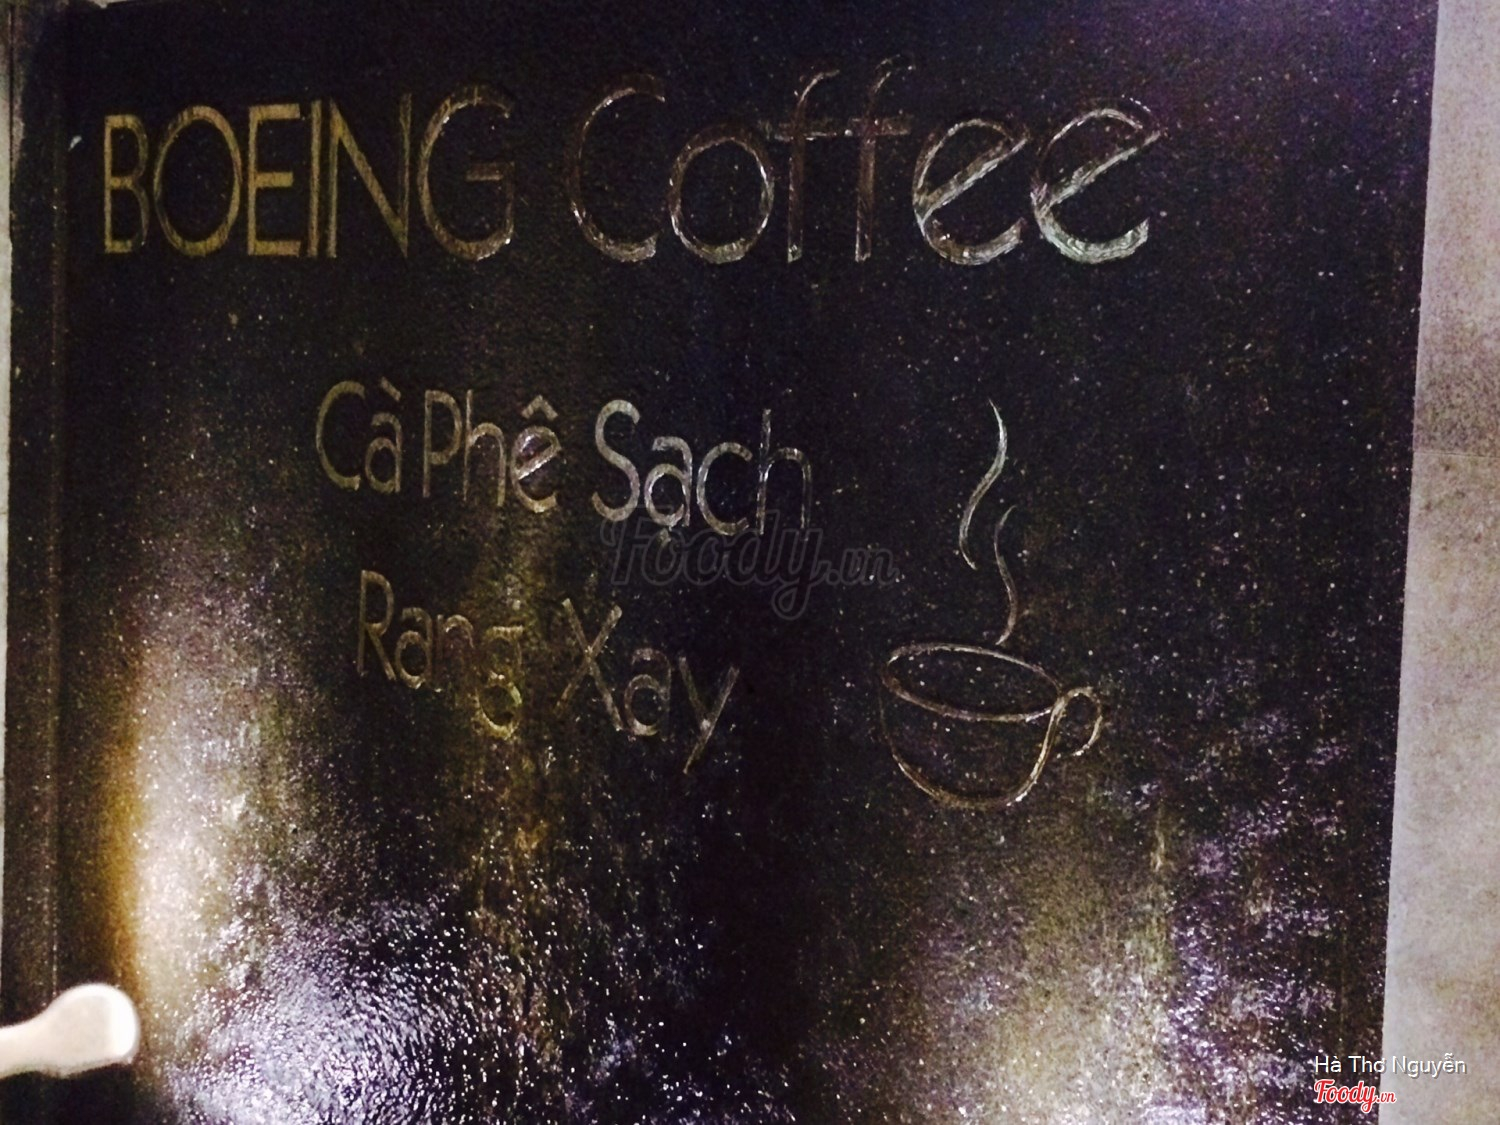 BOEING Coffee
Cà Phê Sạch
Foody.vn
Rang Xay
Hà Thơ Nguyễn
Foody.vn